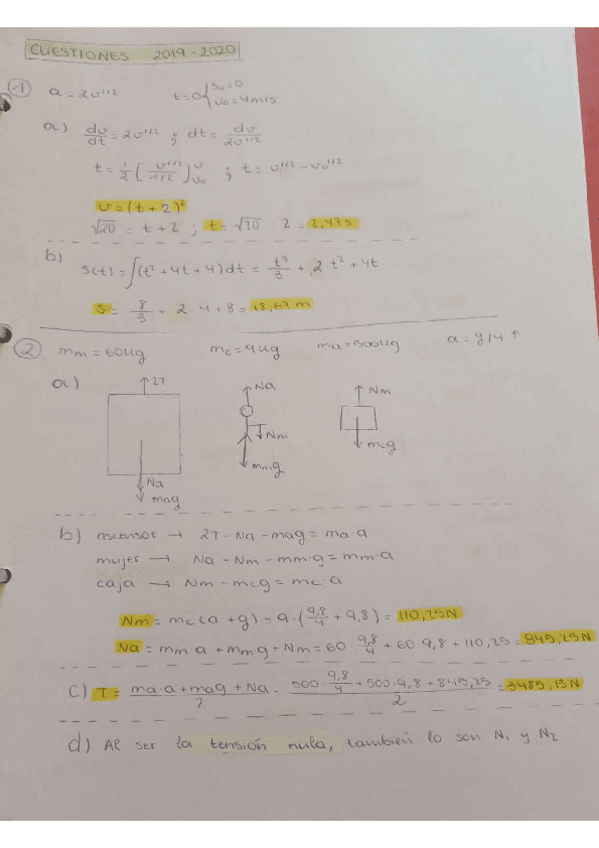 CUESTIONES 2019-2020
① a = 2v^1/2 t=0 { s₀=0 v₀=4m/s
a) dv/dt = 2v^1/2 ; dt = dv/2v^1/2
t = 1/2 ( v^1/2 / 1/2 )_v₀^v ; t = v^1/2 - v₀^1/2
v = (t + 2)²
√20 = t + 2 ; t = √20 - 2 = 2,47s
b)
s(t) = ∫(t² + 4t + 4)dt = t³/3 + 2t² + 4t
s = 8/3 + 2·4 + 8 = 18,67 m
② mm = 60kg mc = 9kg ma = 500kg a = g/4 ↑
a) ↑2T ↑Na ↑Nm
↓Nm
↓mcg
↓mmg
↓Na
↓mag
b) ascensor → 2T - Na - mag = ma·a
mujer → Na - Nm - mm·g = mm·a
caja → Nm - mcg = mc·a
Nm = mc(a + g) = 9·(9,8/4 + 9,8) = 110,25N
Na = mm·a + mm·g + Nm = 60·9,8/4 + 60·9,8 + 110,25 = 845,25N
c) T = ma·a + mag + Na / 2 = 500·9,8/4 + 500·9,8 + 845,25 / 2 = 3485,13N
d) Al ser la tensión nula, también lo son N₁ y N₂